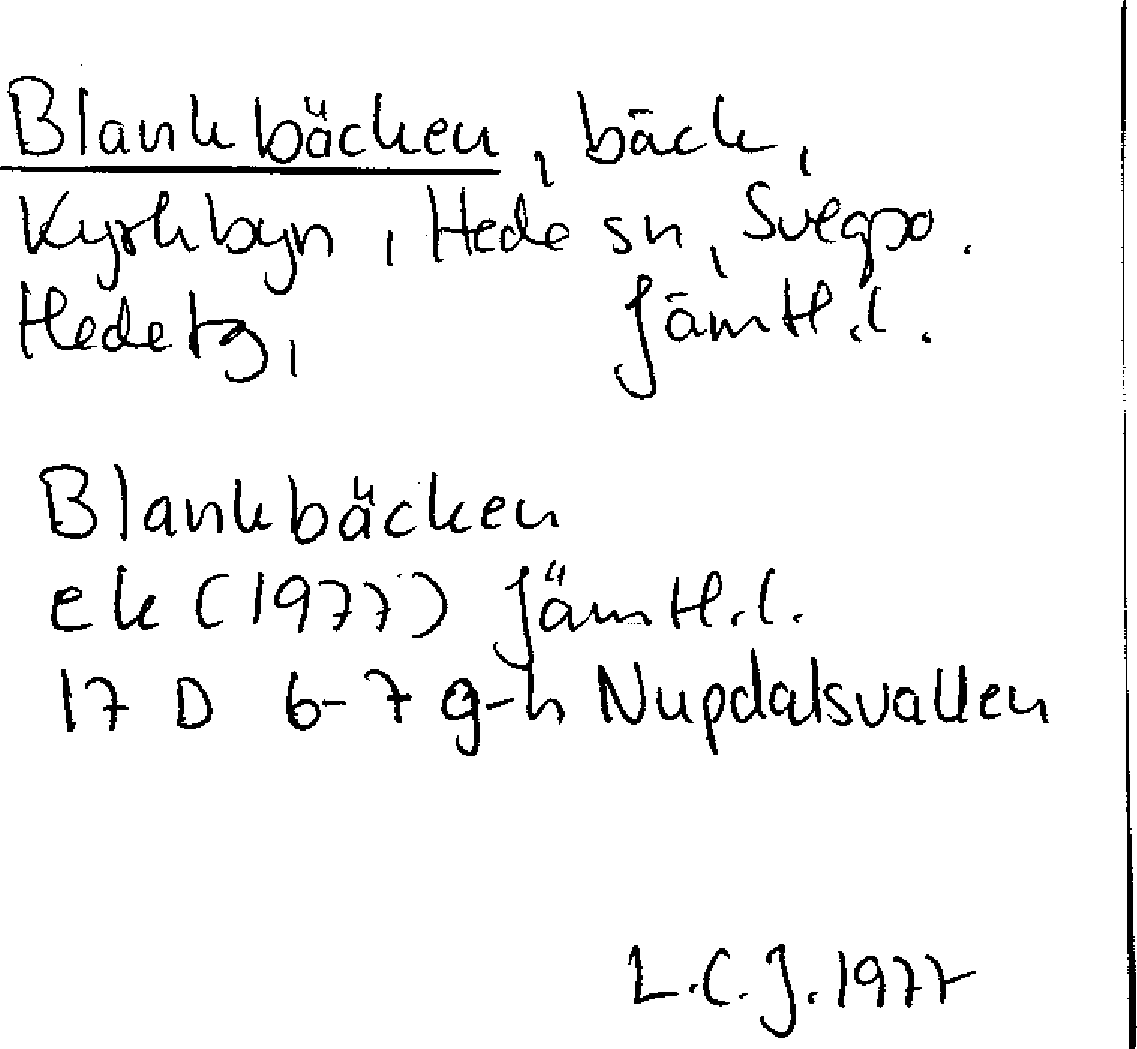 Blankbäcken, bäck,
Kyrkbyn, Hede sn, Svegpo.
Hede tg, Jämtl.l.
Blankbäcken
ek (1977) Jämtl.l.
17 D 6-7 g-h Nupdalsvallen
L.C.J. 1977